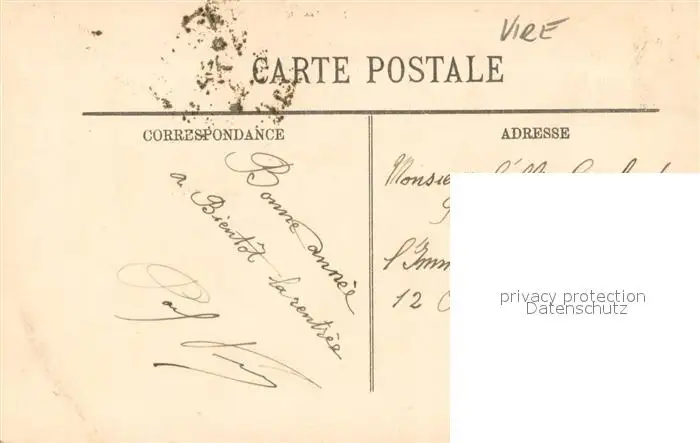 VIRE
CARTE POSTALE
CORRESPONDANCE
Bonne année
a Bientôt la rentrés
ADRESSE
Monsie
l'Imm
12
privacy protection
Datenschutz